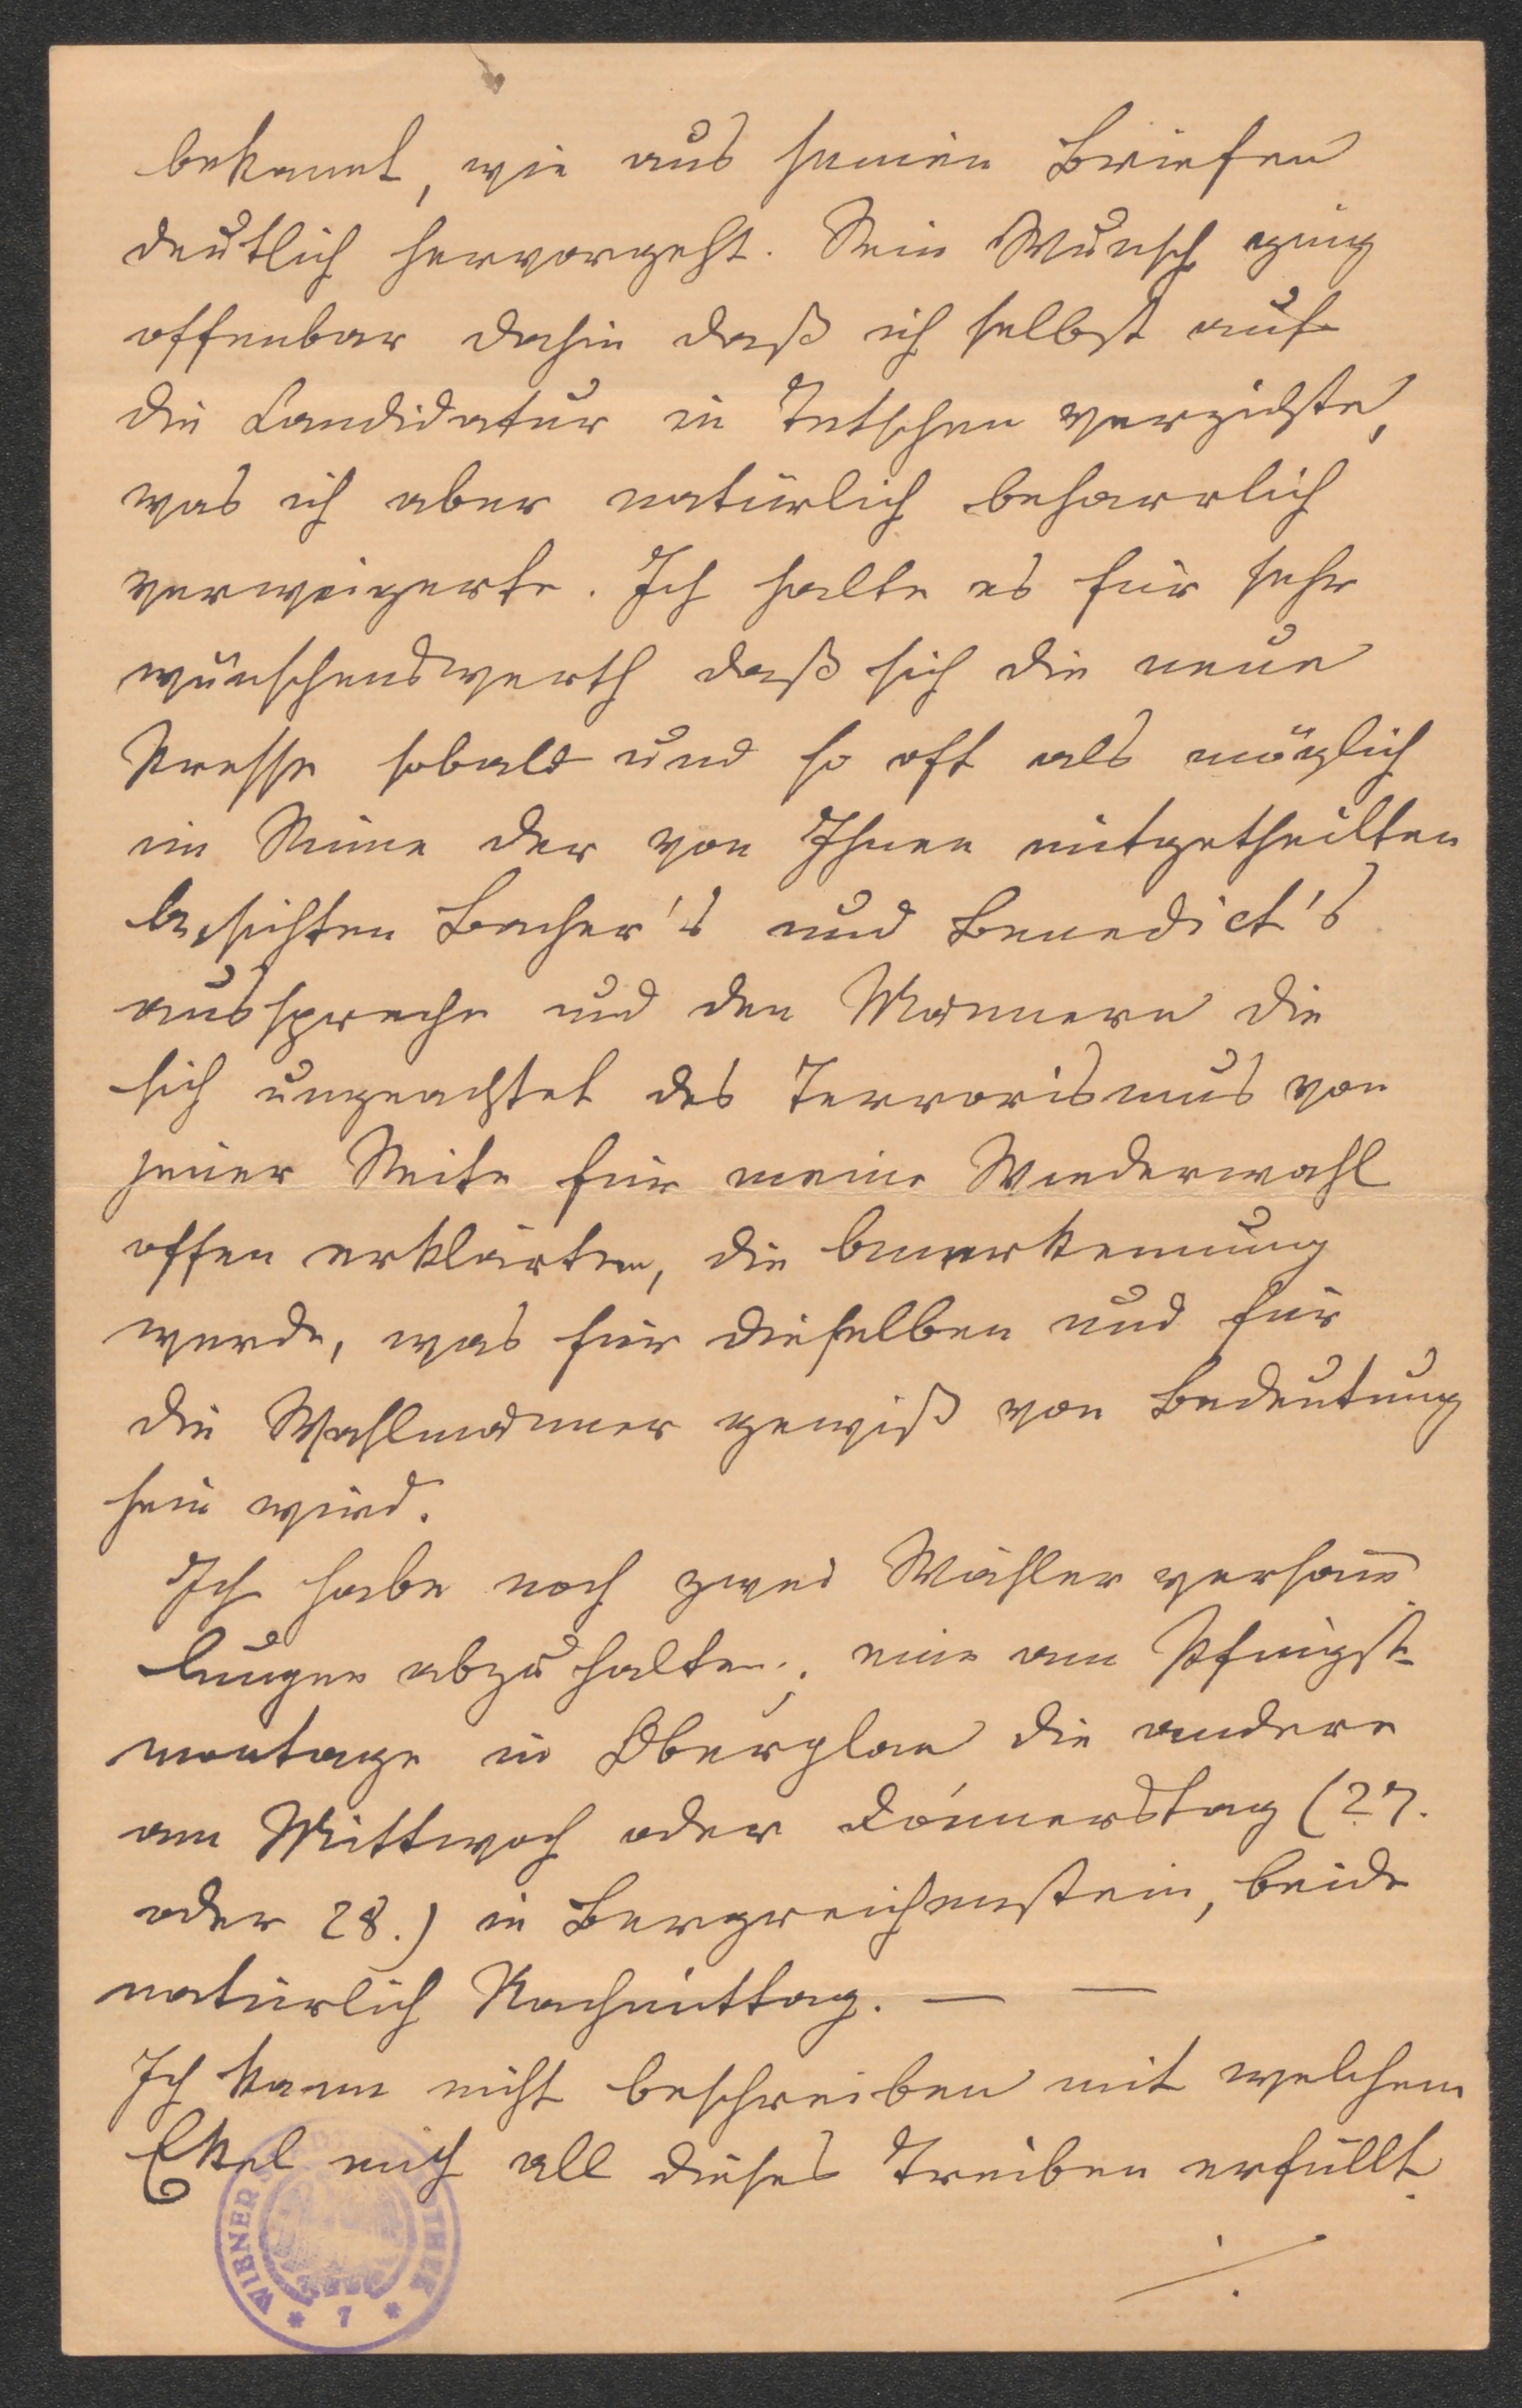 bekannt, wie aus seinen Briefen
deutlich hervorgeht. Sein Wunsch ging
offenbar dahin daß ich selbst auf
die Candidatur in Tetschen verzichte,
was ich aber natürlich beharrlich
verweigerte. Ich halte es für sehr
wünschenswerth daß sich die neue
Presse sobald und so oft als möglich
im Sinne der von Ihnen mitgetheilten
Ansichten Bacher's und Benedict's
ausspreche und den Männern die
sich ungeachtet des Terrorismus von
jener Seite für meine Wiederwahl
offen erklärten, die Anerkennung
werde, was für dieselben und für
die Wahlmänner gewiß von Bedeutung
sein wird.
Ich habe noch zwei Wählerversam̄
lungen abzuhalten; eine am Pfingst-
montage in Oberplan die andere
am Mittwoch oder Donnerstag (27.
oder 28.) in Bergreichenstein, beide
natürlich Nachmittag. — —
Ich kann nicht beschreiben mit welchem
Ekel mich all dieses Treiben erfüllt.
./.
WIENER
* 7 *